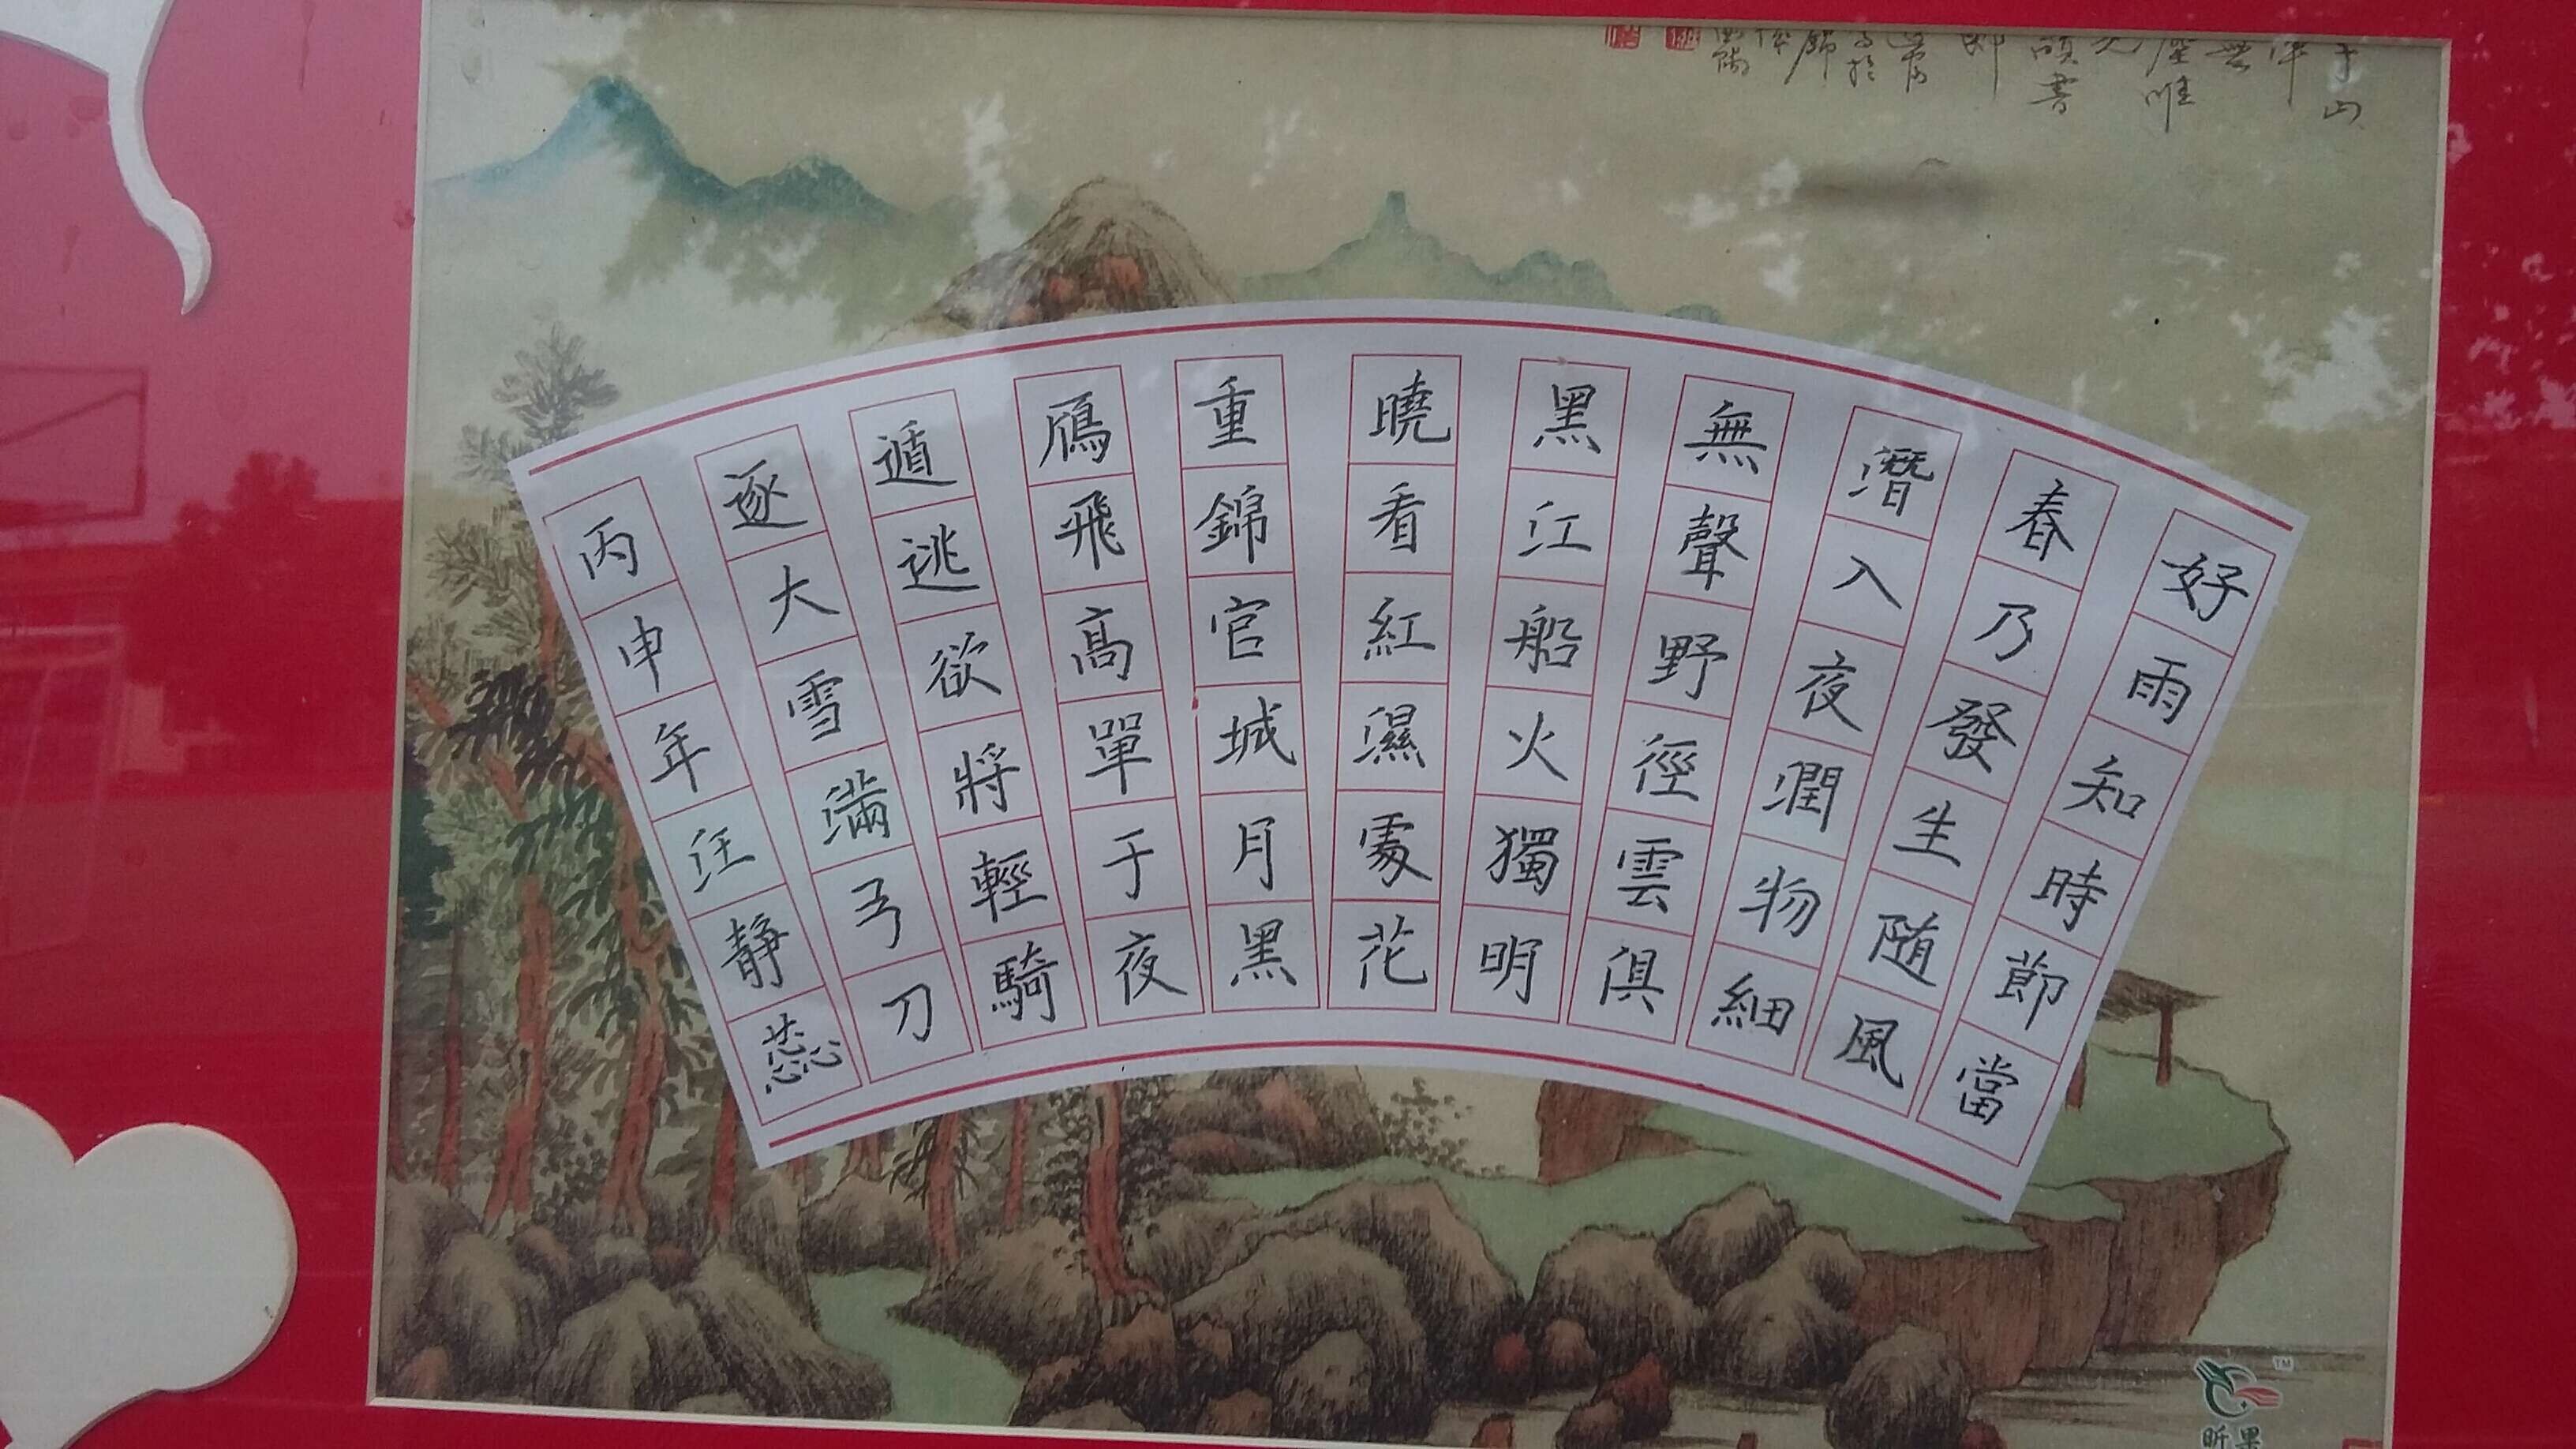 好雨知時節當
春乃發生随風
潛入夜潤物細
無聲野徑雲俱
黑江船火獨明
曉看紅濕處花
重錦官城月黑
鴈飛高單于夜
遁逃欲將輕騎
逐大雪滿弓刀
丙申年汪靜蕊